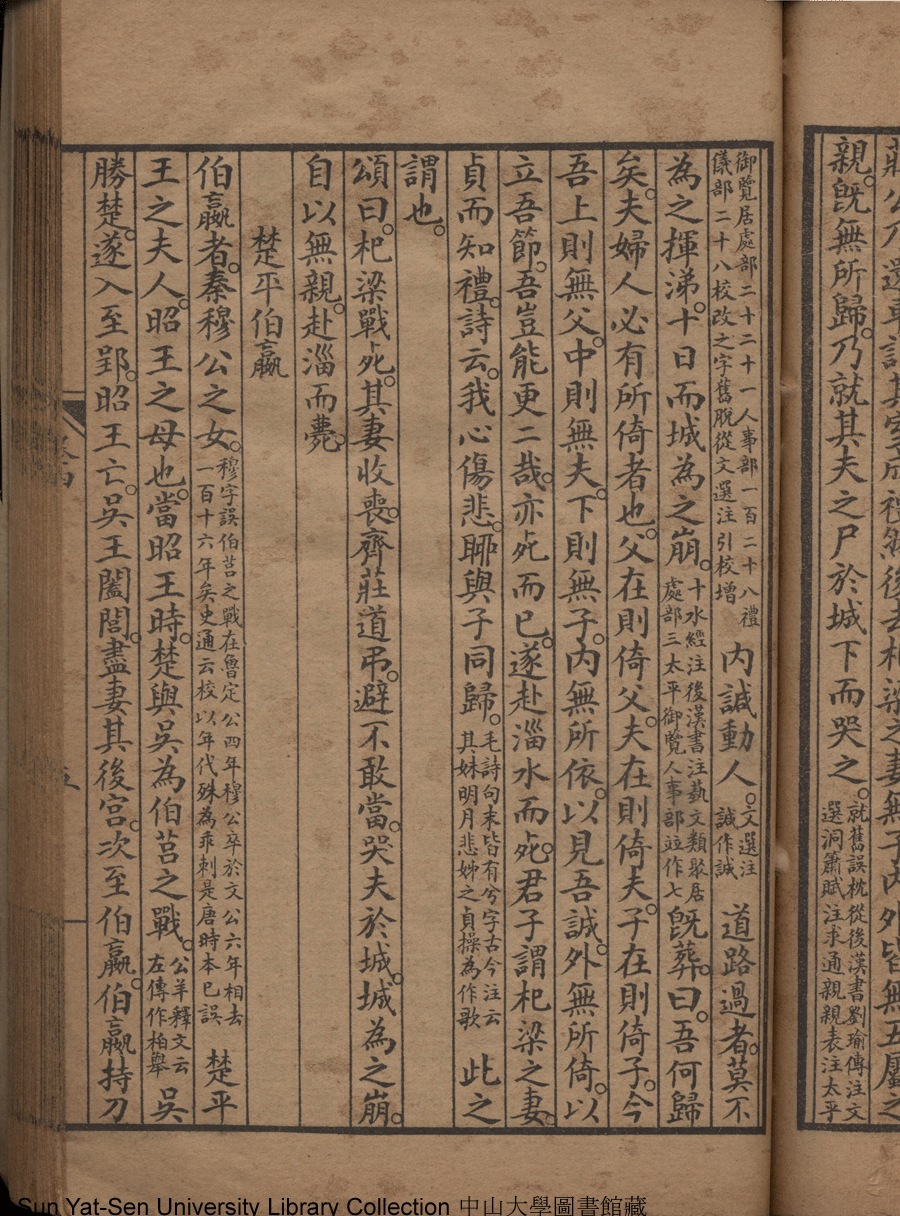 親。旣無所歸。乃就其夫之尸於城下而哭之。就舊誤枕從後漢書劉瑜傳注文選洞簫賦注求通親親表注太平
御覽居處部二十二十一人事部一百二十八禮儀部二十八校改之字舊脫從文選注引校增內諴動人。文選注諴作誠道路過者。莫不
為之揮涕。十日而城為之崩。十水經注後漢書注藝文類聚居處部三太平御覽人事部並作七旣葬。曰。吾何歸
矣。夫婦人必有所倚者也。父在則倚父。夫在則倚夫。子在則倚子。今
吾上則無父。中則無夫。下則無子。內無所依。以見吾誠。外無所倚。以
立吾節。吾豈能更二哉。亦死而已。遂赴淄水而死。君子謂杞梁之妻。
貞而知禮。詩云。我心傷悲。聊與子同歸。毛詩句末皆有兮字古今注云其妹明月悲姊之貞操為作歌此之
謂也。
頌曰。杞梁戰死。其妻收喪。齊莊道弔。避不敢當。哭夫於城。城為之崩。
自以無親。赴淄而薨。
楚平伯嬴
伯嬴者。秦穆公之女。穆字誤伯莒之戰在魯定公四年穆公卒於文公六年相去一百十六年矣史通云校以年代殊為乖剌是唐時本已誤楚平
王之夫人。昭王之母也。當昭王時。楚與吳為伯莒之戰。公羊釋文云左傳作柏舉吳
勝楚。遂入至郢。昭王亡。吳王闔閭。盡妻其後宮。次至伯嬴。伯嬴持刀
Sun Yat-Sen University Library Collection 中山大學圖書館藏